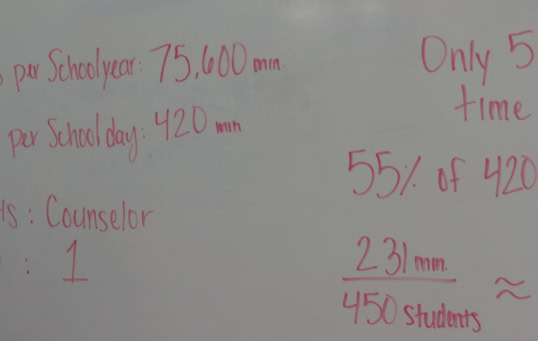 per Schoolyear: 75,600 min.
per School day: 420 min
ts: Counselor
: 1
Only 5
time
55% of 420
231 min.
450 students ≈